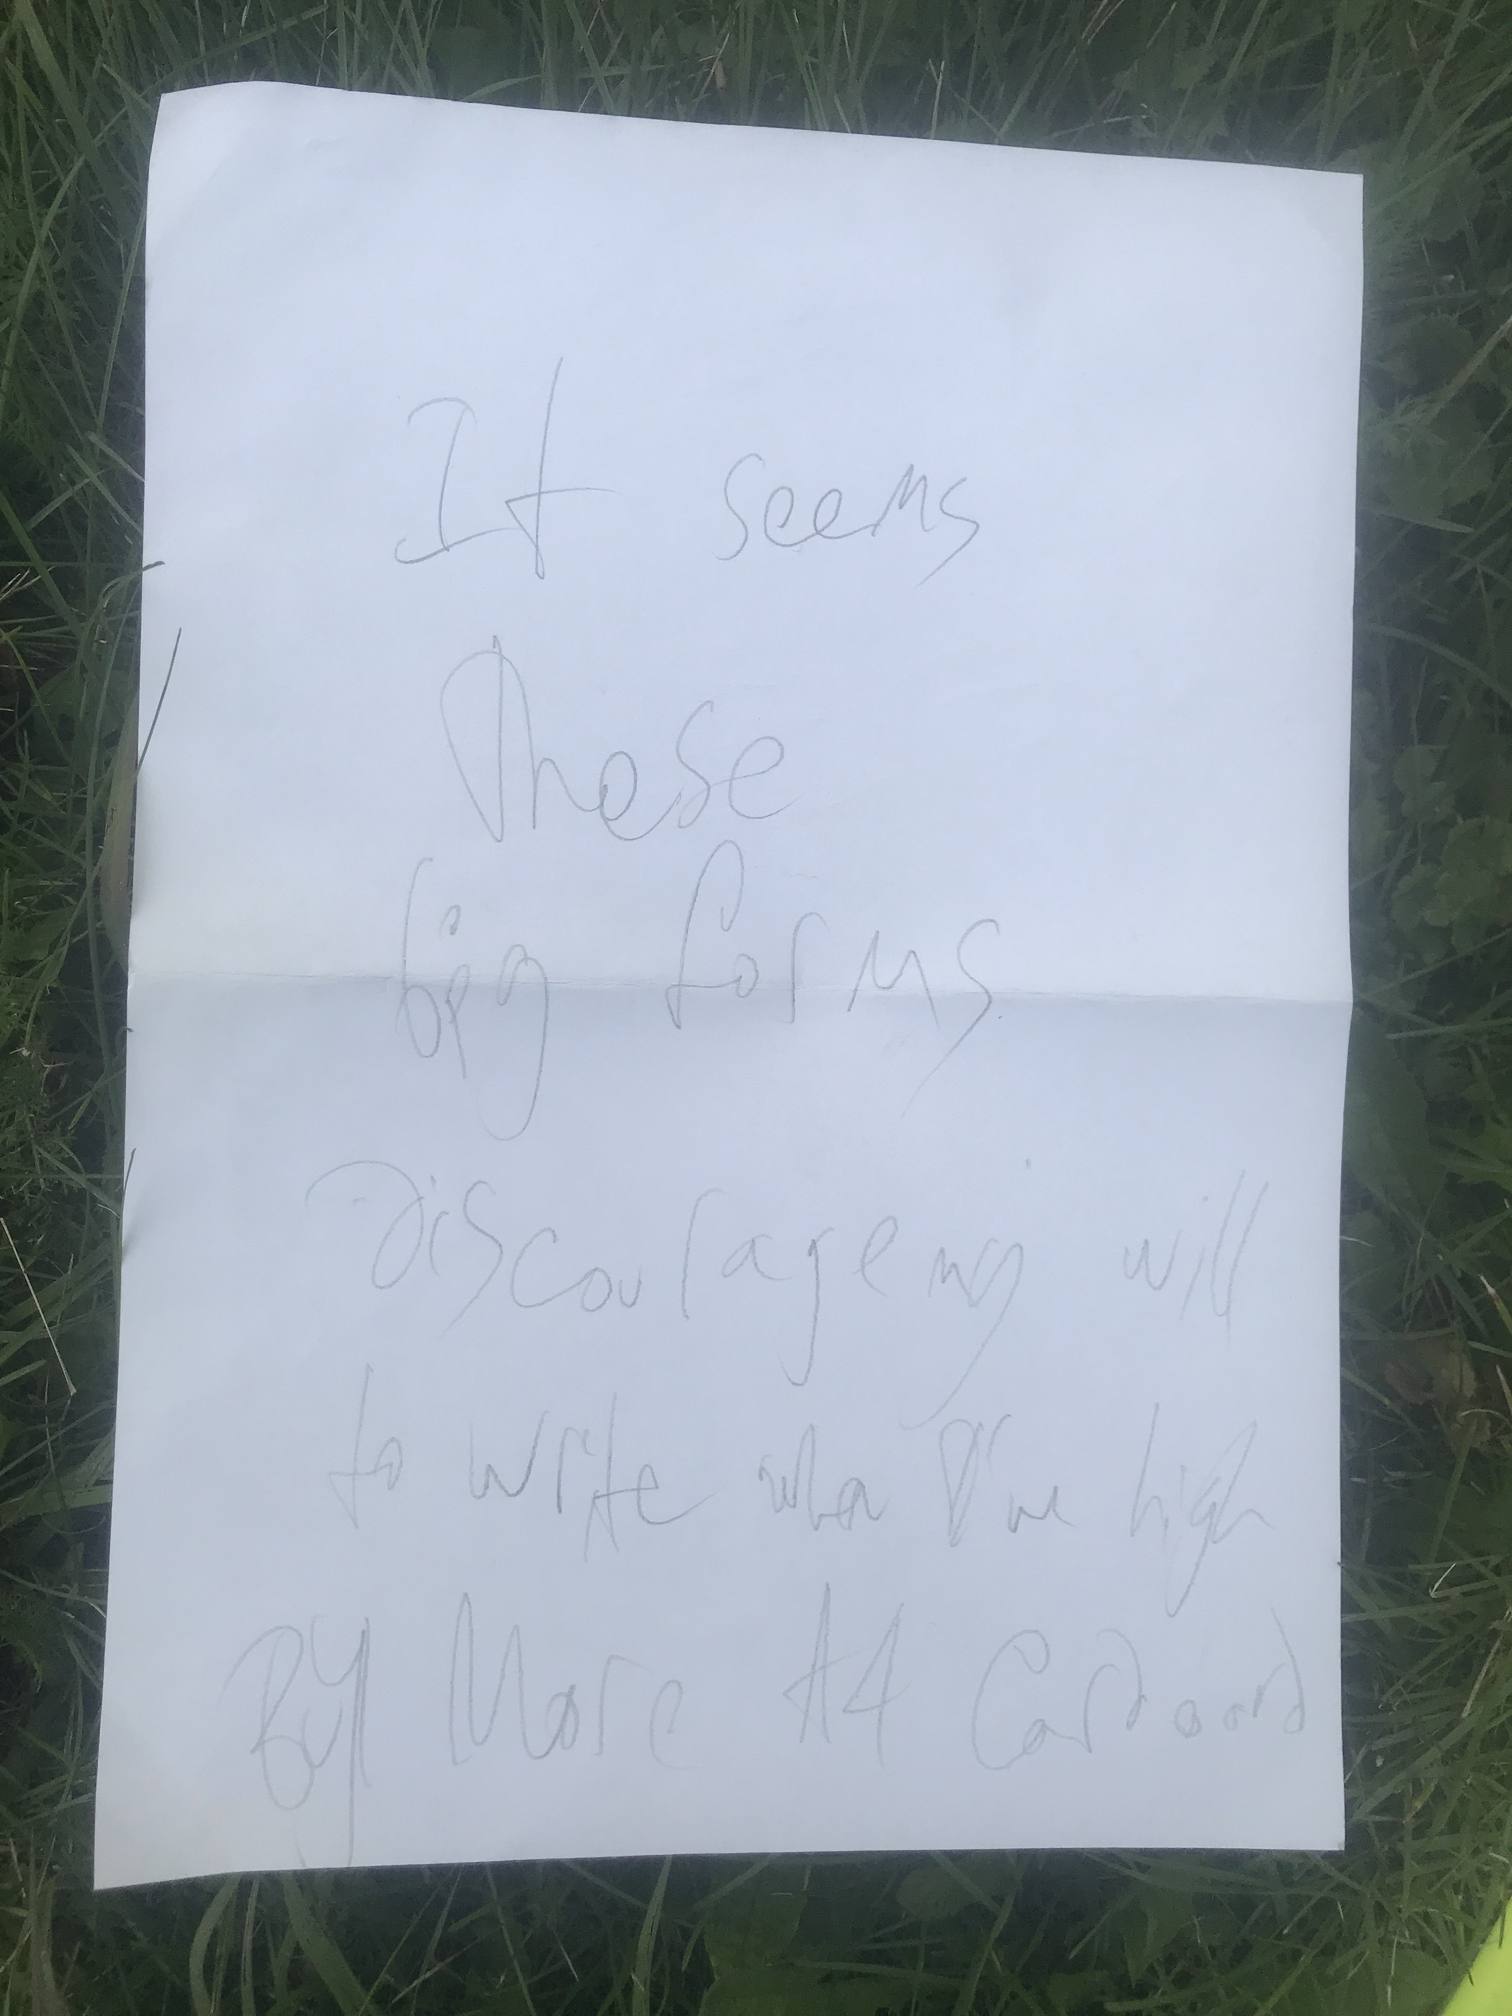 It seems
These
big forms
Discourageing will
to write when I'm high
Buy More A4 Cardboard